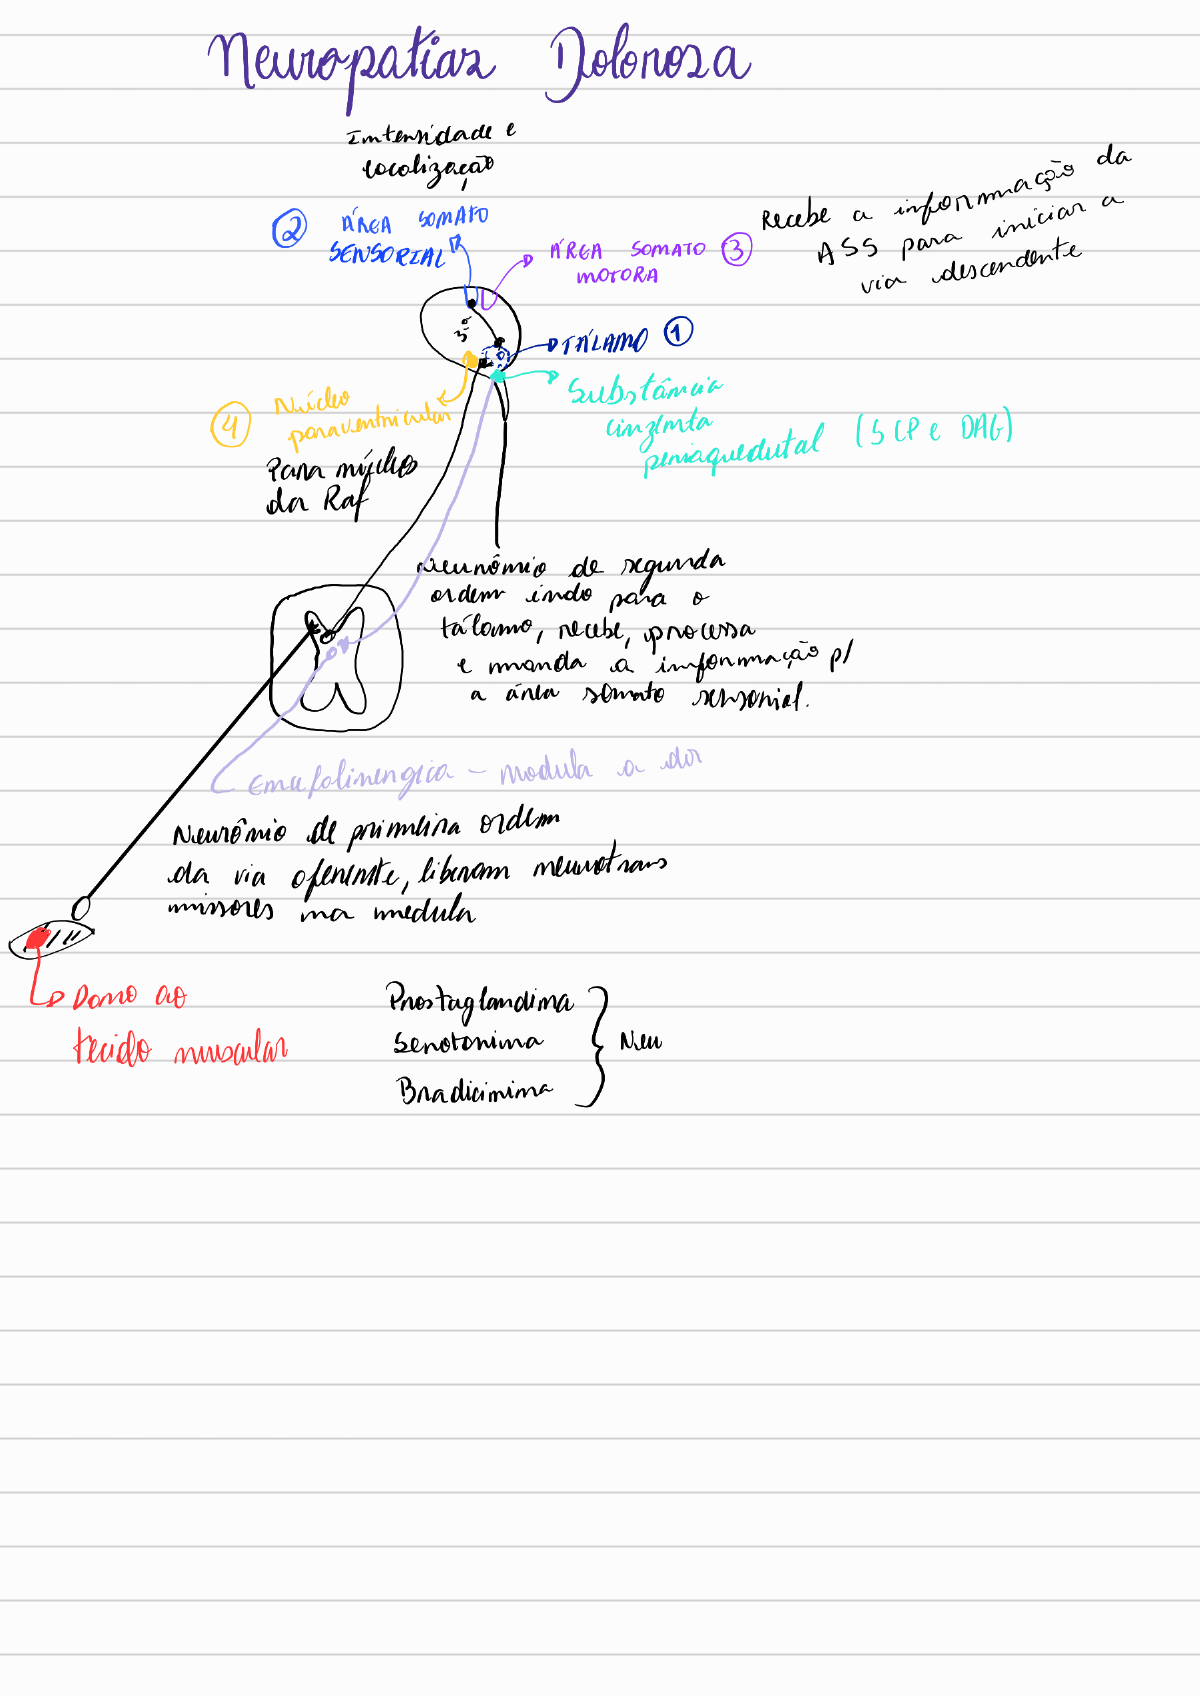 Neuropatias Dolorosa
Intensidade e
localização
② ÁREA SOMATO
SENSORIAL
ÁREA SOMATO ③
MOTORA
Recebe a informação da
ASS para iniciar a
via descendente
3º
TÁLAMO ①
Substância
cinzenta
periaquedutal (SCP e DAG)
④ Núcleo
paraventricular
Para núcleo
da Raf
Neurônio de segunda
ordem indo para o
tálamo, recebe, processa
e manda a informação p/
a área somato sensorial.
Encefalinergica - modula a dor
Neurônio de primeira ordem
da via aferente, liberam neurotrans
missores na medula
Dano ao
tecido muscular
Prostaglandina
Serotonina
Bradicinina
Neu